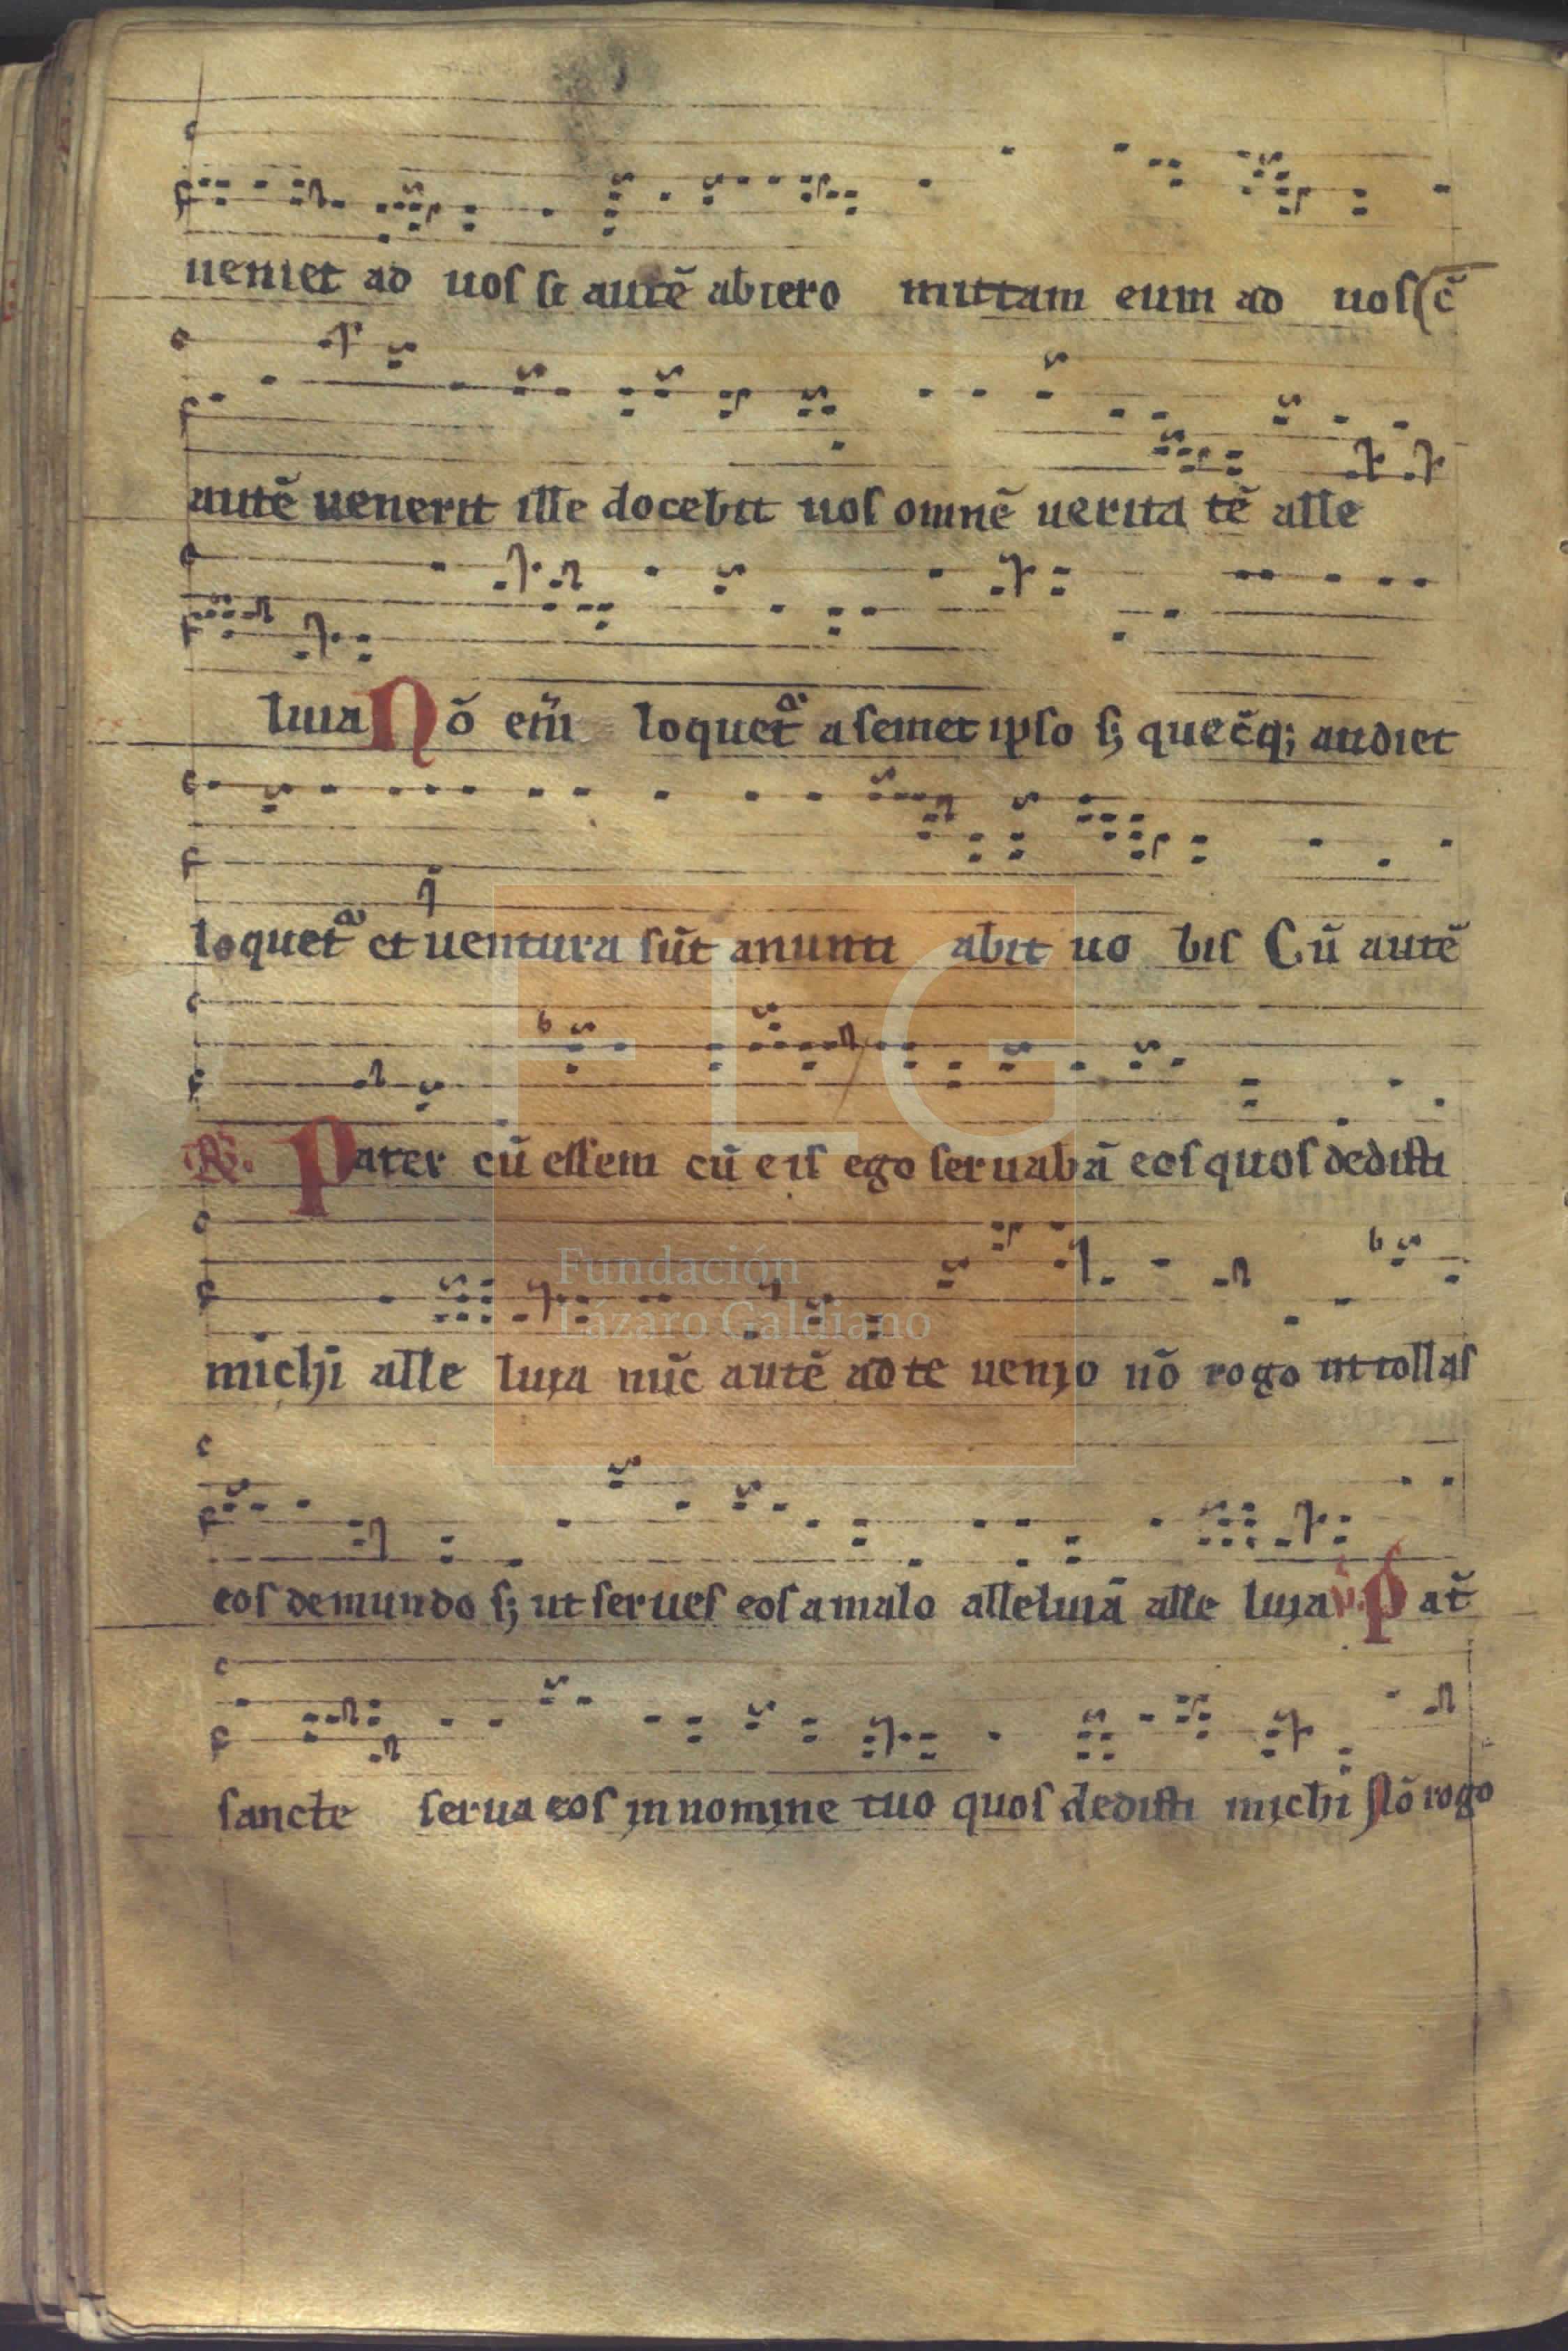 ueniet ad uos si autē abiero mittam eum ad uos cū
autē uenerit ille docebit uos omnē uerita tē alle
luia Nō eīn loquetᵃ a semet ipso sꝫ quecūqꝫ audiet
loquetᵃ et uentura sūt anunti abit uo bis Cū autē
R̄. Pater cū essem cū eis ego seruabā eos quos dedisti
michi alle luia nūc autē ad te uenio nō rogo ut tollas
eos de mundo sꝫ ut serues eos a malo alleluiā alle luia ℣. Pat̄
sancte serua eos in nomine tuo quos dedisti michi Nō rogo
FLG
Fundación
Lázaro Galdiano